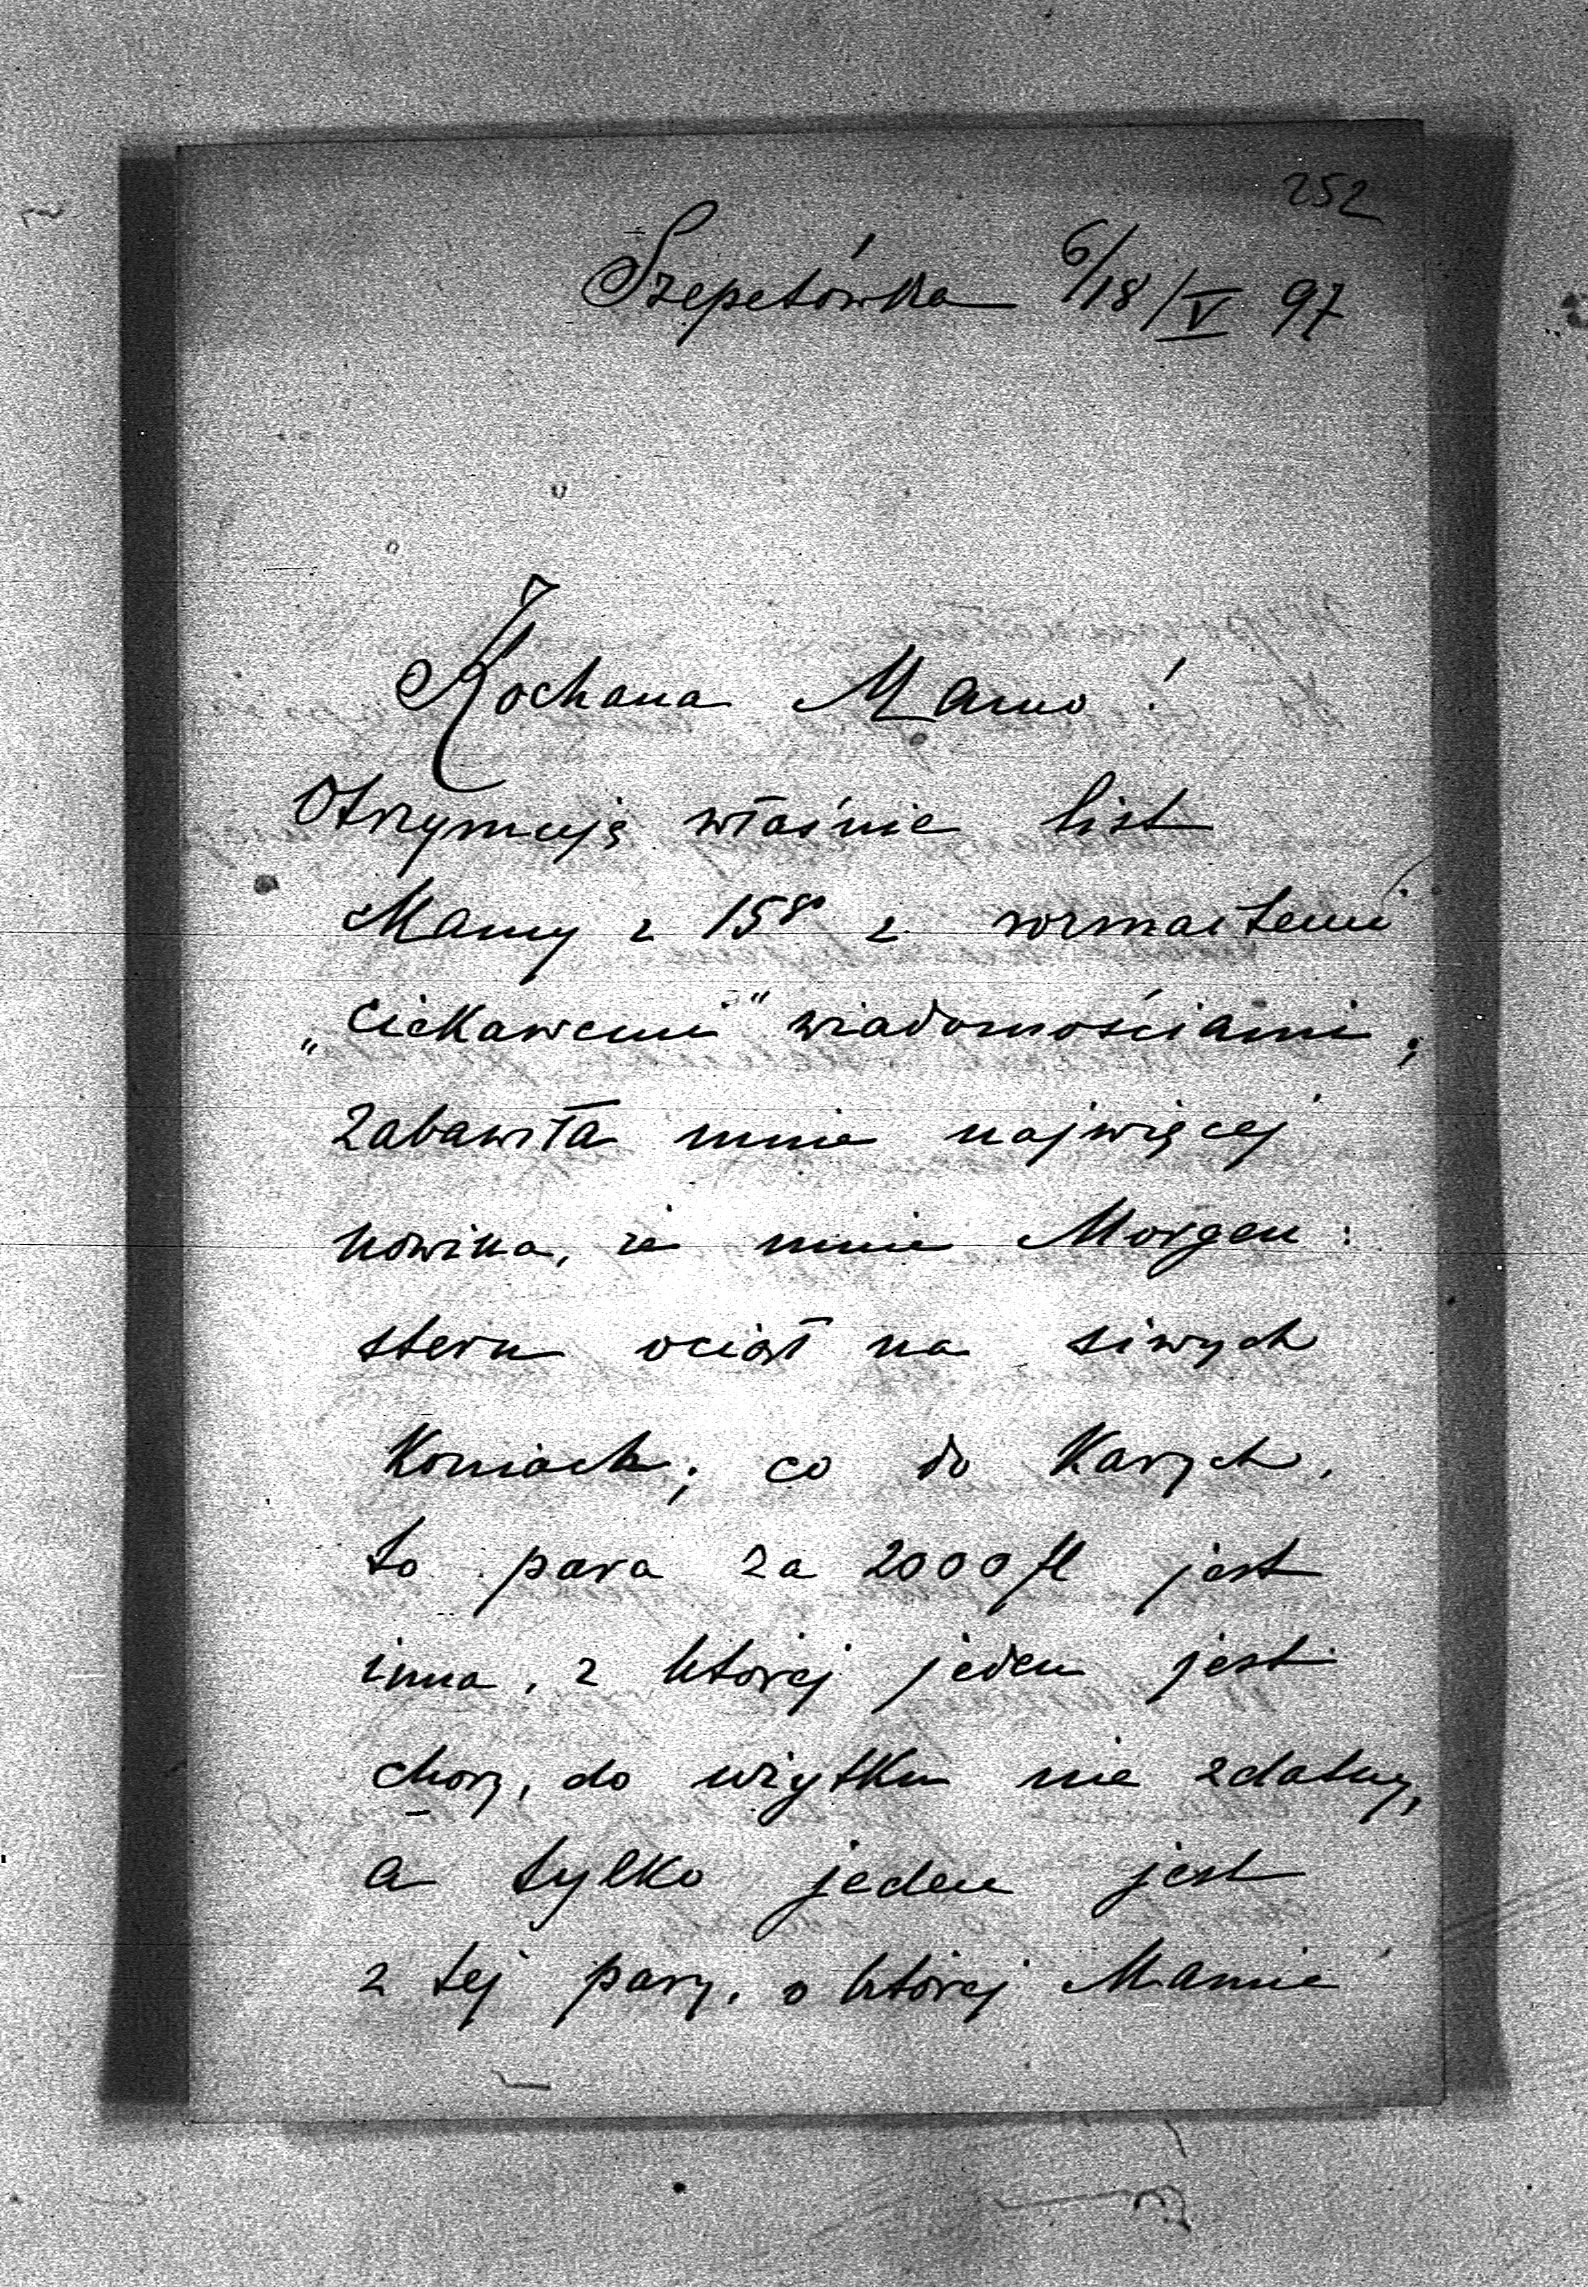 252
Szepetówka 6/18/V 97
Kochana Mamo!
Otrzymuję właśnie list
Mamy z 15go z rozmaitemi
„ciekawemi" wiadomościami;
zabawiła mnie najwięcej
nowina, że mnie Morgen:
stern ociął na siwych
koniach; co do karych,
to para za 2000 fl jest
inna, z której jeden jest
chory, do użytku nie zdatny,
a tylko jeden jest
z tej pary, o której Mamie